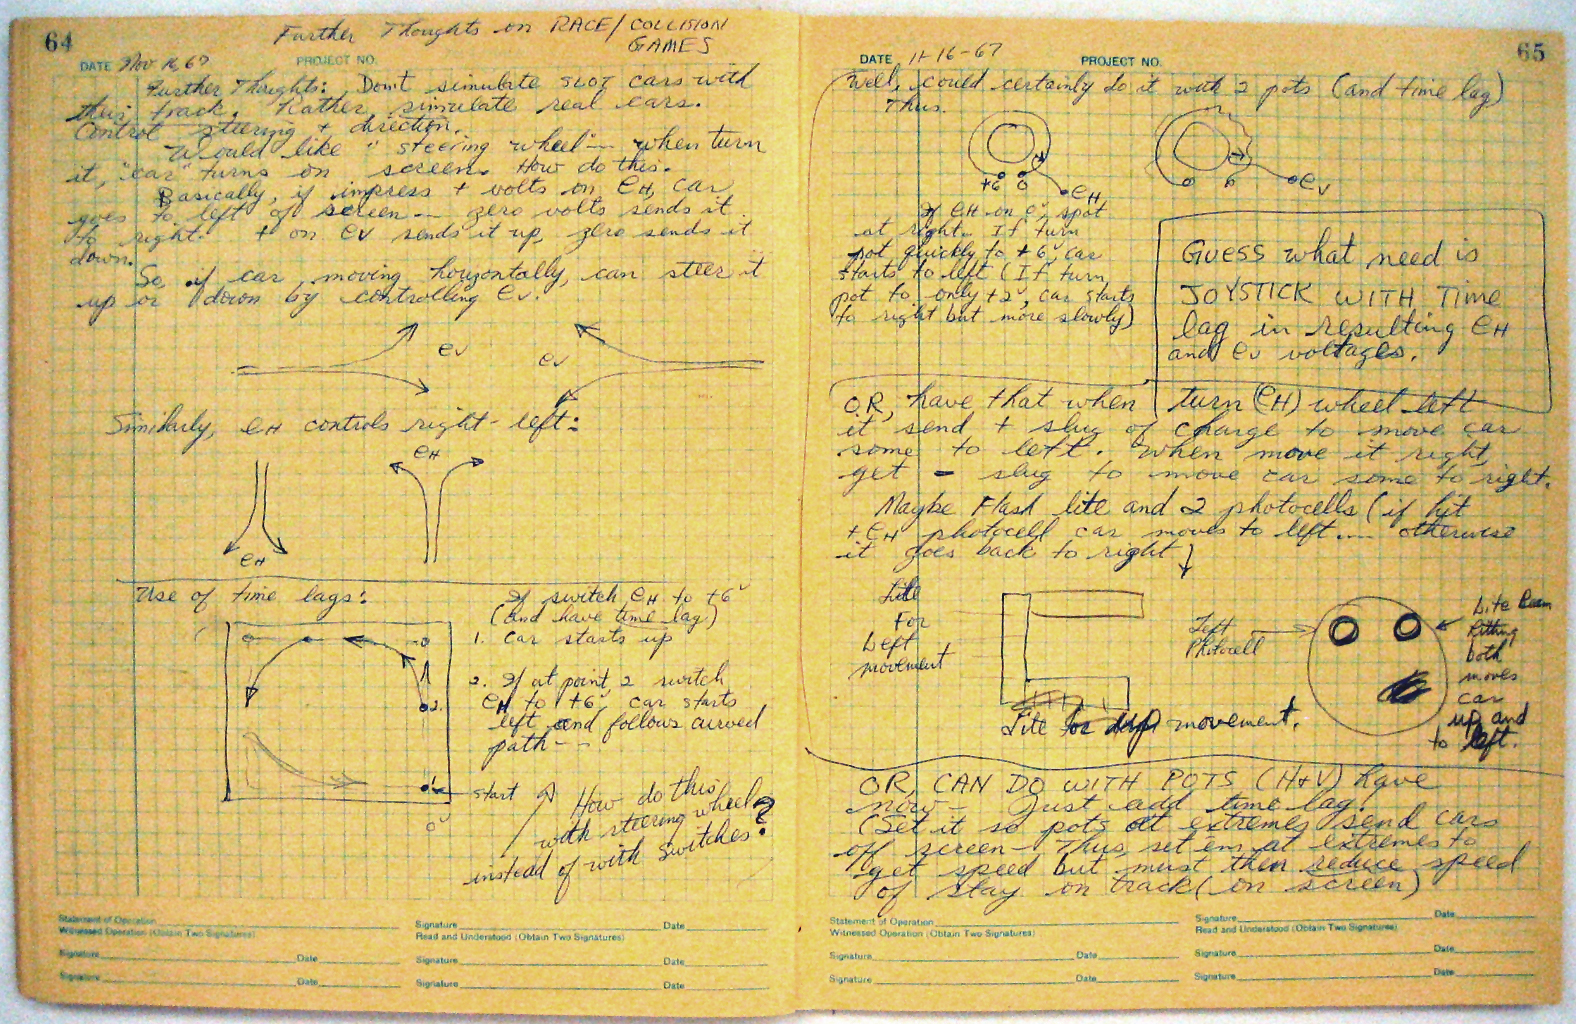 64
Further Thoughts on RACE/COLLISION
GAMES
DATE Nov 16, 67 PROJECT NO.
Further Thoughts: Don't simulate SLOT cars with
this track. Rather, simulate real cars.
Control steering + direction.
Would like "steering wheel" — when turn
it, "car" turns on screen. How do this.
Basically, if impress + volts on eH, car
goes to left of screen — zero volts sends it
to right. + on ev sends it up, zero sends it
down.
So if car moving horizontally, can steer it
up or down by controlling ev.
ev
ev
Similarly, eH controls right-left:
eH
eH
Use of time lags:
If switch eH to +6v
(and have time lag)
1. Car starts up
2. If at point 2 switch
eH to +6v car starts
left and follows curved
path--
2.
1
start
0v
How do this
with steering wheel
instead of with switches?
Statement of Operation
Witnessed Operation (Obtain Two Signatures)
Signature Date
Signature Date
Signature Date
Read and Understood (Obtain Two Signatures)
Signature Date
Signature Date
65
DATE 11-16-67 PROJECT NO.
Well, could certainly do it with 2 pots (and time lag)
Thus.
+6 0 eH
0 6 ev
If eH on 0v, spot
at right. If turn
pot quickly to +6v car
starts to left (If turn
pot to only +2v, car starts
to right but more slowly)
GUESS what need is
JOYSTICK WITH Time
lag in resulting eH
and ev voltages.
OR, have that when turn (eH) wheel left
it send + slug of charge to move car
some to left. When move it right,
get - slug to move car some to right.
Maybe Flash lite and 2 photocells (if hit
+eH photocell car moves to left.... otherwise
it goes back to right)
Lite
For
Left
movement
Lite for up movement.
Left
Photocell
Lite beam
hitting
both
moves
car
up and
to left.
OR, CAN DO WITH POTS (H+V) have
now - Just add time lag!
(Set it so pots at extremes send cars
off screen - Thus, set em at extremes to
get speed but must then reduce speed
of stay on track (on screen)
Statement of Operation
Witnessed Operation (Obtain Two Signatures)
Signature Date
Signature Date
Signature Date
Read and Understood (Obtain Two Signatures)
Signature Date
Signature Date